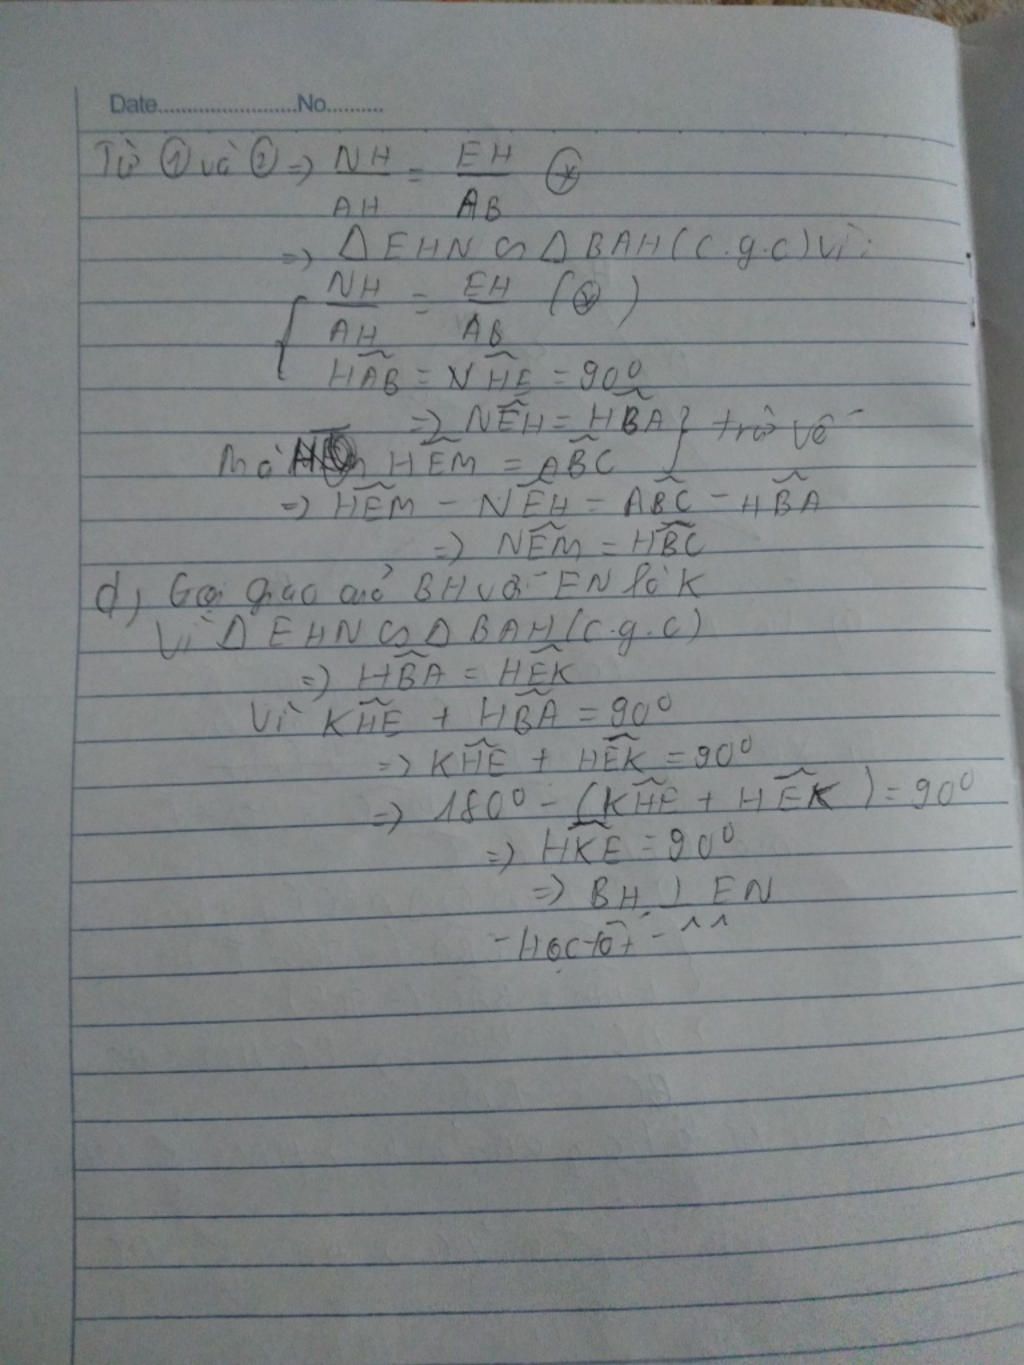 Date........................No..........
Từ ① và ② => NH/AH = EH/AB (*)
=> Δ EHN ∽ Δ BAH (c.g.c) vì:
{ NH/AH = EH/AB (*)
HAB^ = NHE^ = 90⁰
=> NEH^ = HBA^ } trừ vế
Mà HEM^ = ABC^
=> HEM^ - NEH^ = ABC^ - HBA^
=> NEM^ = HBC^
d, Gọi giao của BH với EN là K
Vì Δ EHN ∽ Δ BAH (c.g.c)
=> HBA^ = HEK^
Vì KHE^ + HBA^ = 90⁰
=> KHE^ + HEK^ = 90⁰
=> 180⁰ - (KHE^ + HEK^) = 90⁰
=> HKE^ = 90⁰
=> BH ⊥ EN
- Học tốt - ^^